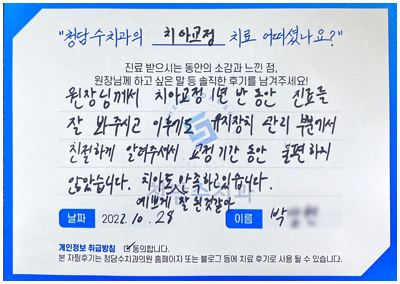 "청담수치과의 치아교정 치료 어떠셨나요?"
진료 받으시는 동안의 소감과 느낀 점,
원장님께 하고 싶은 말 등 솔직한 후기를 남겨주세요!
원장님께서 치아교정 1년 반 동안 진료를
잘 봐주시고 이후에도 유지장치 관리 부분에서
친절하게 알려주셔서 교정기간 동안 불편하지
않았습니다. 치아도 만족하고있습니다.
예쁘게 잘 된것같아
날짜 2022. 10. 28 이름 박
개인정보 취급방침 동의합니다.
본 자필후기는 청담수치과의원 홈페이지 또는 블로그 등에 치료 후기로 사용 될 수 있습니다.